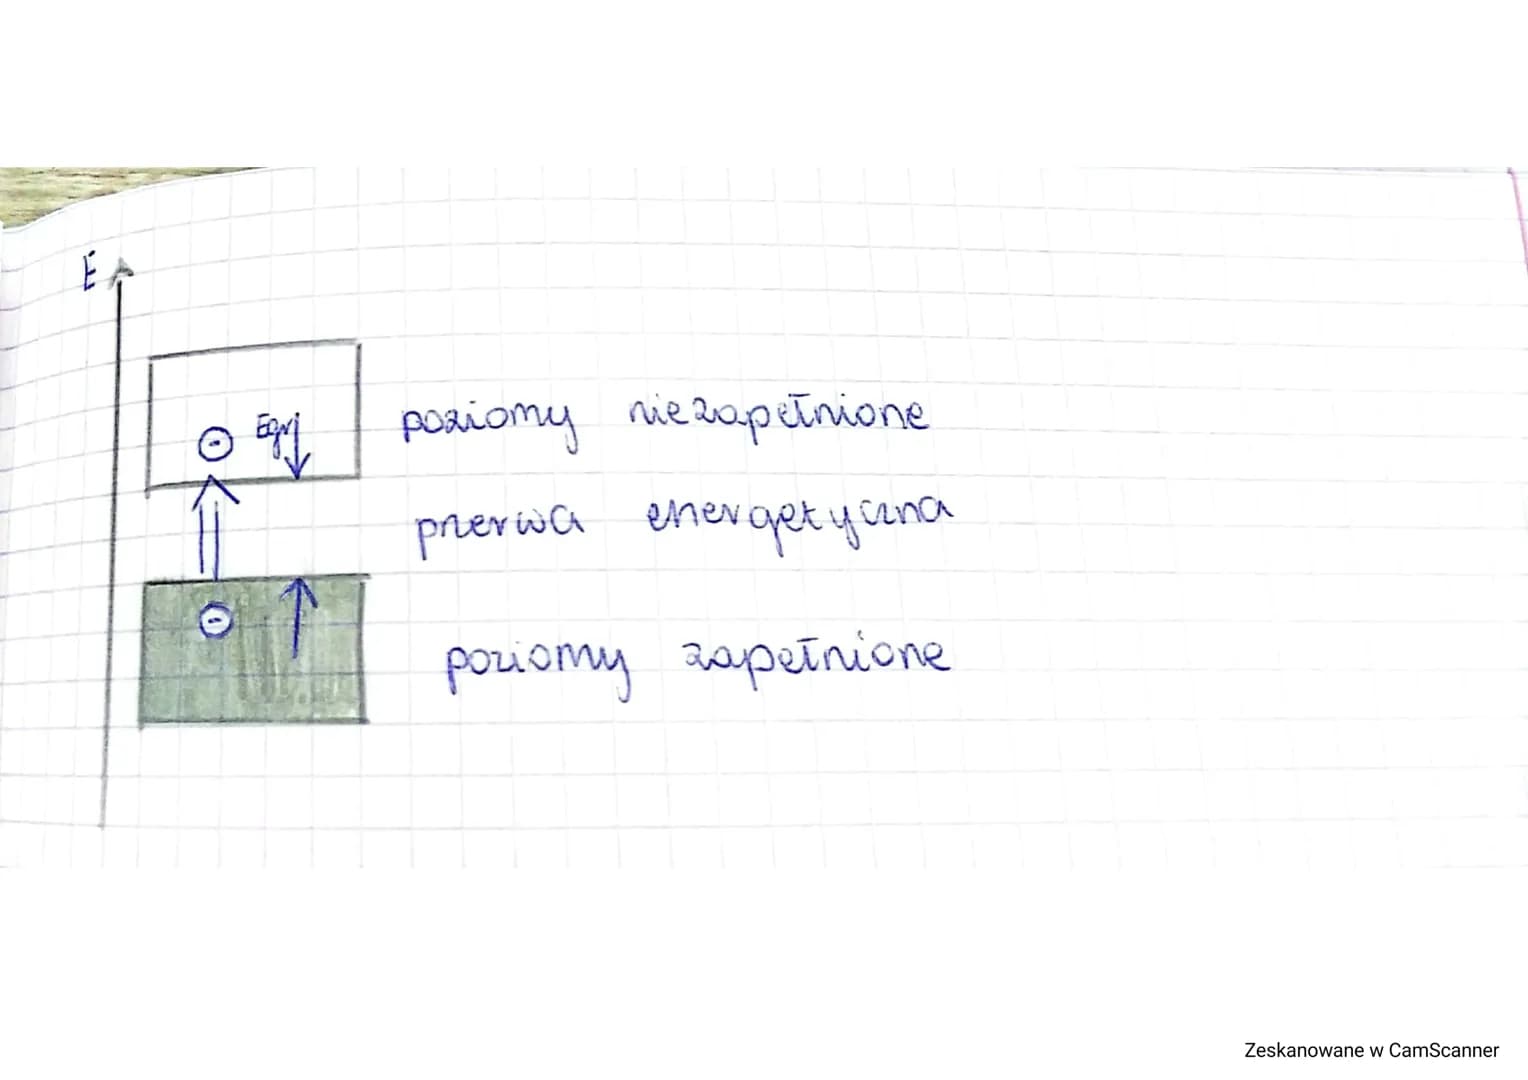 E
Egr
poziomy niezapełnione
przerwa energetyczna
poziomy zapełnione
Zeskanowane w CamScanner